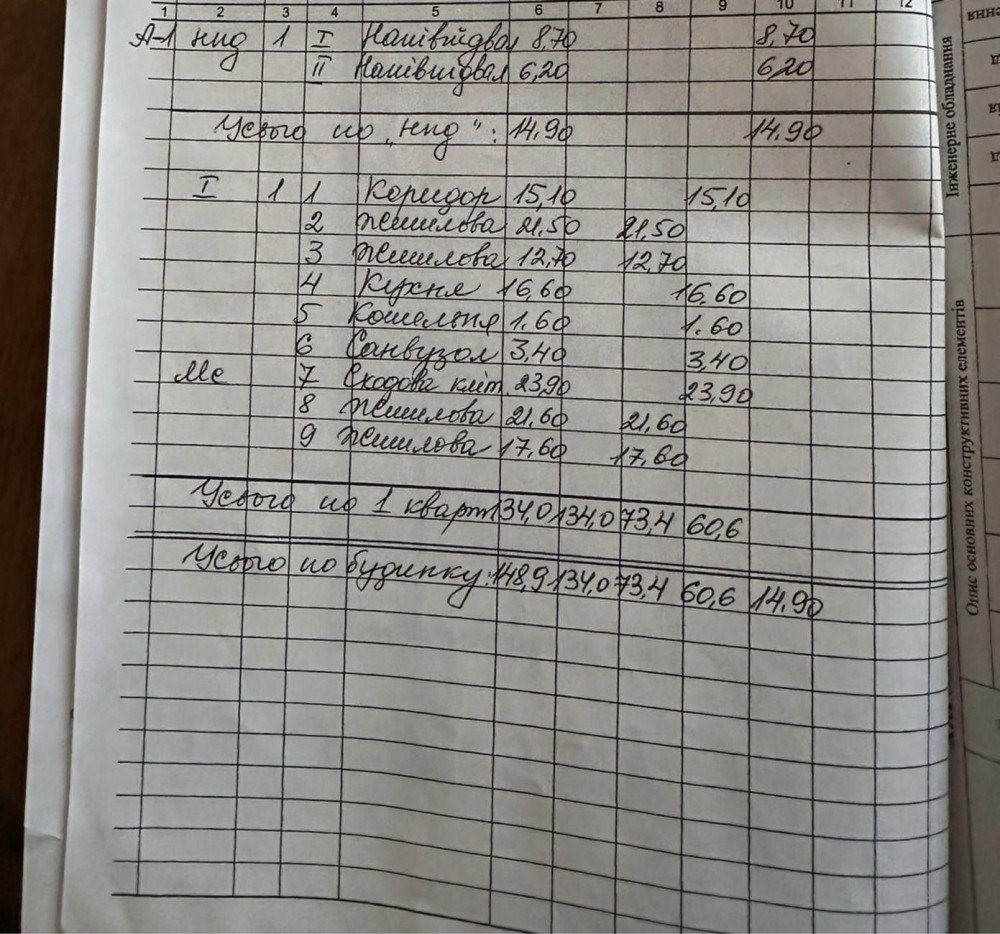 1 2 3 4 5 6 7 8 9 10 11 12
А-1 нпд 1 I Напівпідвал 8,70 8,70
II Напівпідвал 6,20 6,20
Усього по „нпд“: 14.90 14.90
I 1 1 Коридор 15,10 15,10
2 Житлова 21,50 21,50
3 Житлова 12,70 12,70
4 Кухня 16,60 16.60
5 Котельня 1.60 1.60
6 Санвузол 3,40 3,40
Ме 7 Сходова кліт. 23,90 23,90
8 Житлова 21,60 21,60
9 Житлова 17,60 17,60
Усього по 1 кварт 134,0 134,0 73,4 60,6
Усього по будинку: 148,9 134,0 73,4 60,6 14.90
Інженерне обладнання
Опис основних конструктивних елементів